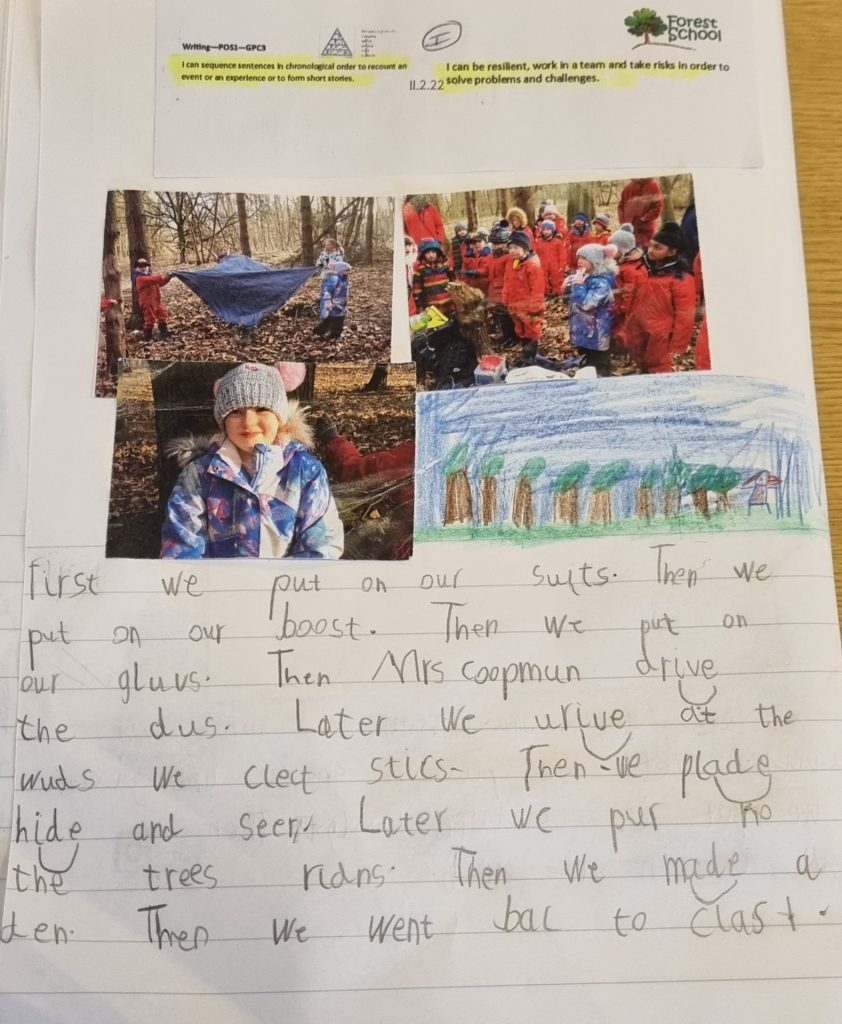 Writing—POS1—GPC3
I can sequence sentences in chronological order to recount an
event or an experience or to form short stories.
I
Forest
School
I can be resilient, work in a team and take risks in order to
solve problems and challenges.
11.2.22
first we put on our suits. Then we
put on our boost. Then we put on
our gluvs. Then Mrs coopmun drive
the dus. Later we urive at the
wuds we clect stics. Then we plade
hide and seer. Later we pur no
the trees ridns. Then we made a
den. Then we went bac to clast.